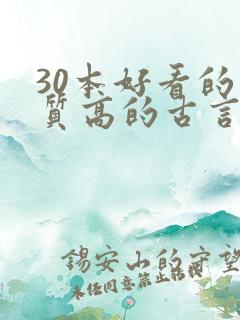 30本好看的
质高的古言
锡安山的守望
未经同意禁止转载